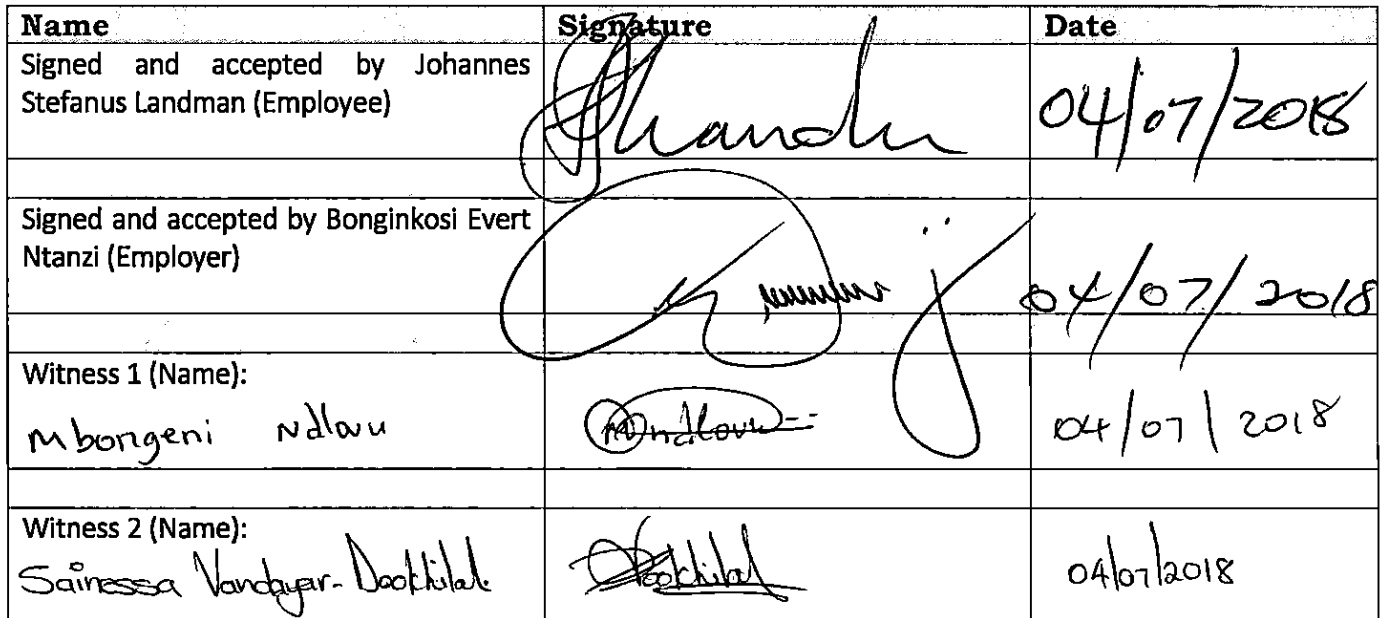 Name Signature Date
Signed and accepted by Johannes
Stefanus Landman (Employee)
04/07/2018
Signed and accepted by Bonginkosi Evert
Ntanzi (Employer)
04/07/2018
Witness 1 (Name):
Mbongeni Ndlovu Mndlovu 04/07/2018
Witness 2 (Name):
Sainessa Vandayar-Dookhilal Dookhilal 04/07/2018